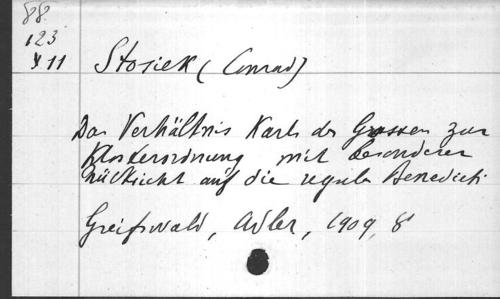 88
123
x 11
Stosiek (Conrad)
Das Verhältnis Karls des Grossen zur
Klosterordnung mit besonderer
rücksicht auf die regula Benedicti.
Greifswald, Adler, 1909, 8°